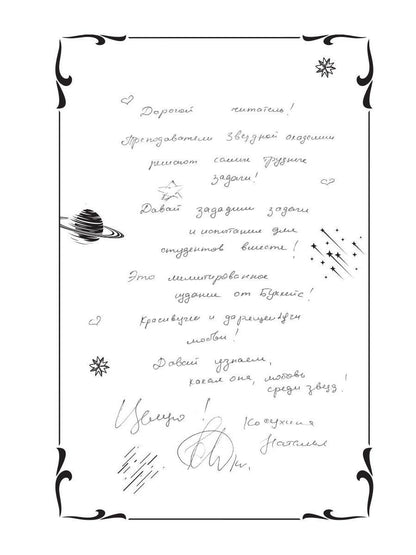 Дорогой читатель!
Преподаватели Звездной академии
решают самые трудные
задачи!
Давай зададим задачи
и испытание для
студентов вместе!
Это лимитированное
издание от Букейс!
и дарящей
любви!
Давай узнаем,
какая она, любовь
среди звезд!
Целую!
Косухина
Наталья